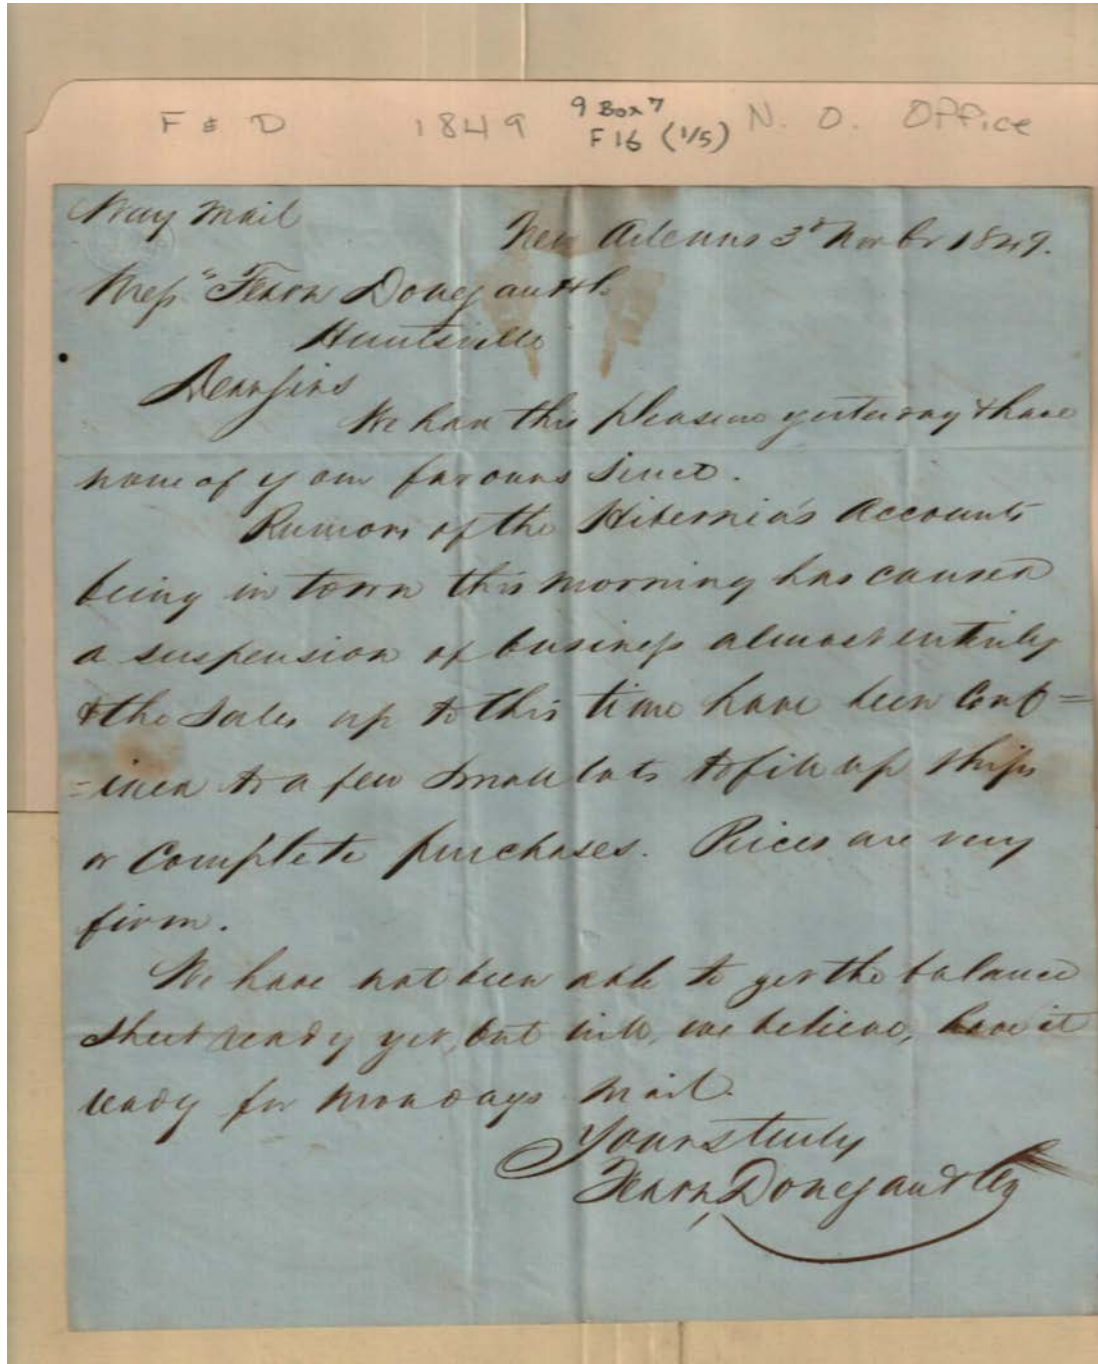 F & D 1849 9 Box 7 N. O. Office
F16 (1/5)
Way Mail
New Orleans 3d Novbr 1849.
Mess" Fearn Donegan & Co.
Huntsville
Dear Sirs
We had this pleasure yesterday & have
none of your favours since.
Rumors of the Hibernia's Accounts
being in town this morning has caused
a suspension of business almost entirely
& the sales up to this time have been conf=
=ined to a few small lots to fill up ships
or complete purchases. Prices are very
firm.
We have not been able to get the balance
sheet ready yet, but will, we believe, have it
ready for Mondays Mail.
Yours truly
Fearn, Donegan & Co